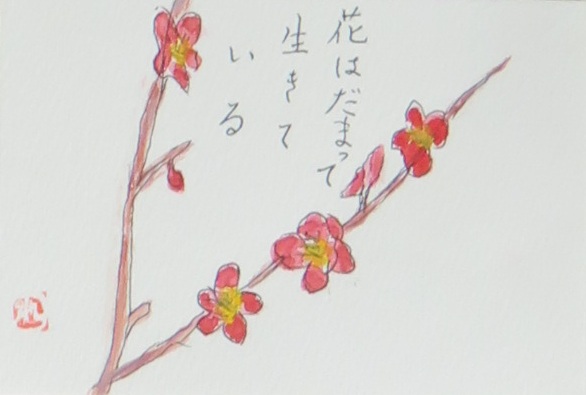 花はだまって
生きて
いる